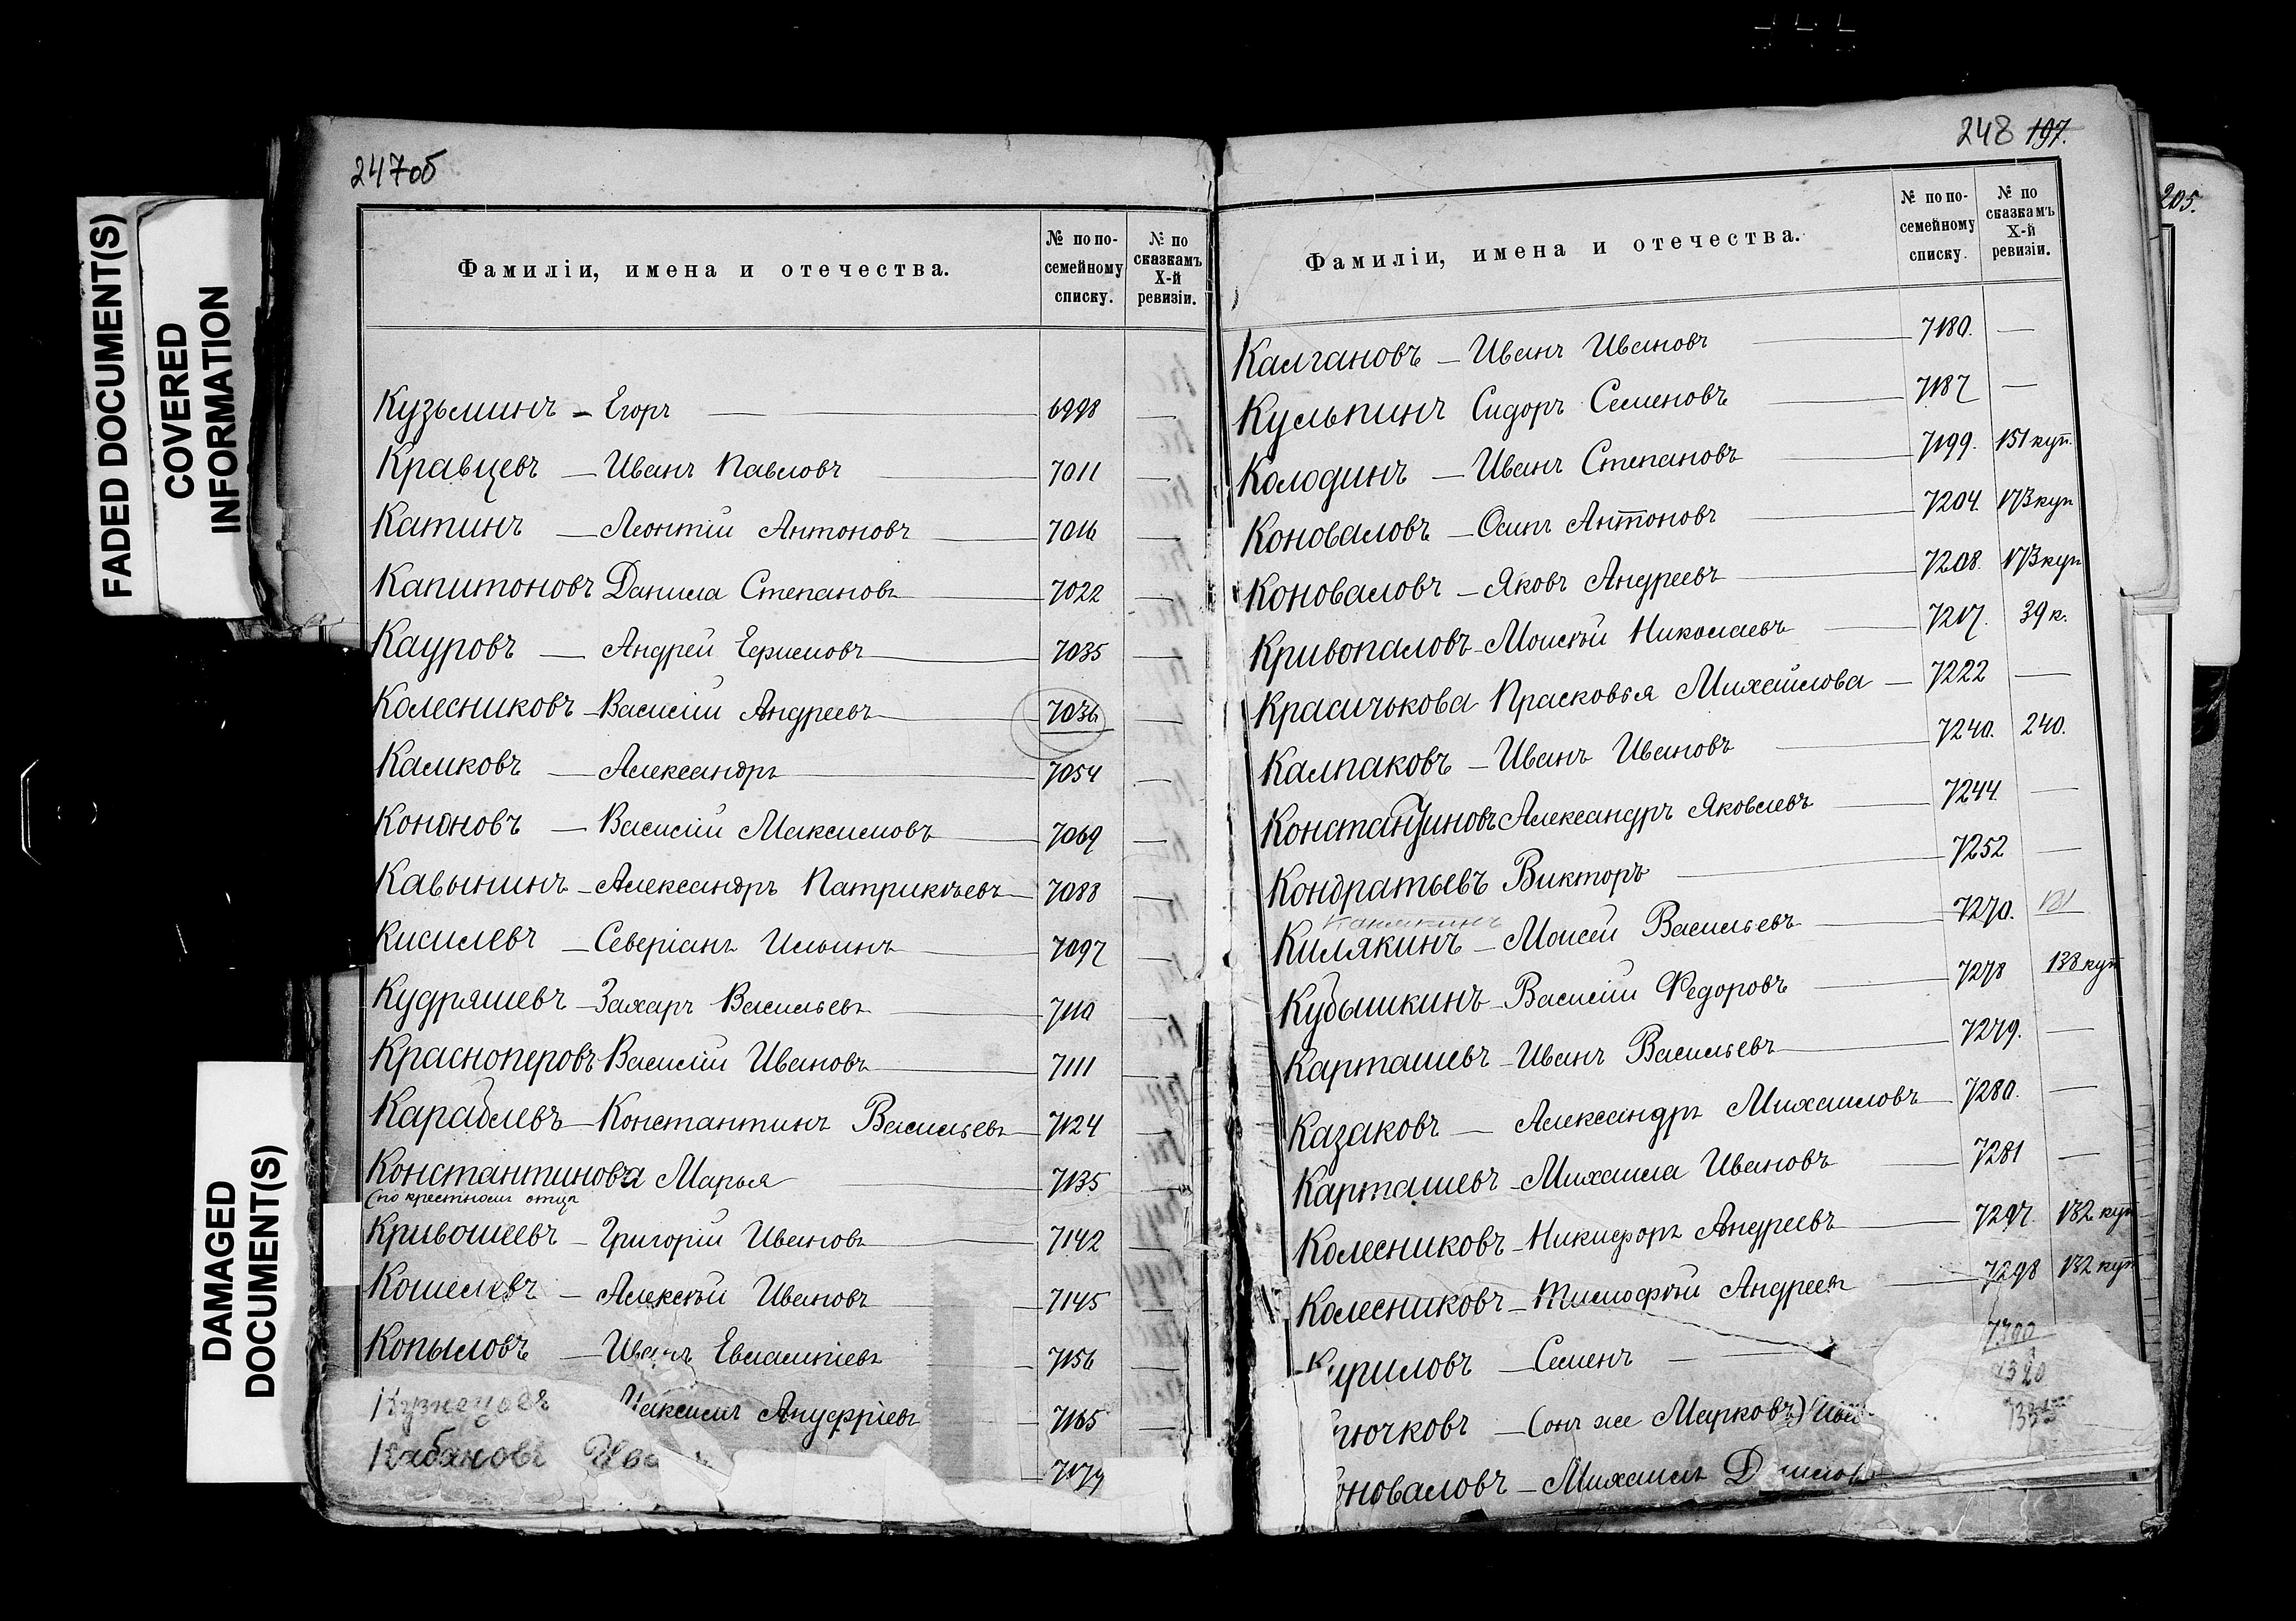 FADED DOCUMENT(S)
COVERED
INFORMATION
DAMAGED
DOCUMENT(S)
247об
Фамиліи, имена и отечества.
№ по по-
семейному
списку.
№ по
сказкамъ
X-й
ревизіи.
Кузьминъ - Егоръ — 6998 —
Кравцевъ — Иванъ Павловъ — 7011 —
Катинъ — Леонтій Антоновъ — 7016 —
Капитоновъ Данила Степановъ — 7022 —
Кауровъ — Андрей Ефимовъ — 7035 —
Колесниковъ - Василій Андреевъ — 7036 —
Камковъ — Александръ — 7054 —
Кононовъ — Василій Максимовъ — 7069 —
Кавынинъ - Александръ Патрикѣевъ — 7088 —
Кисилевъ — Северіанъ Ильинъ — 7097 —
Кудряшевъ - Захаръ Васильевъ — 7110 —
Красноперовъ Василій Ивановъ — 7111 —
Караблевъ - Константинъ Васильевъ — 7124 —
Константинова Марья — 7135 —
(по крестному отцу
Кривошеевъ - Григорій Ивановъ — 7142 —
Кошелевъ - Алексѣй Ивановъ — 7145 —
Копыловъ — Иванъ Евлампіевъ — 7156 —
Кузнецовъ Максимъ Ануфріевъ — 7165 —
Кабановъ 7179
248 197.
Фамиліи, имена и отечества.
№ по по-
семейному
списку.
№ по
сказкамъ
X-й
ревизіи.
Калгановъ — Иванъ Ивановъ — 7180. —
Кульпинъ Сидоръ Семеновъ — 7187 —
Колодинъ — Иванъ Степановъ — 7199. 151 куп.
Коноваловъ — Осипъ Антоновъ — 7204. 173 куп
Коноваловъ — Яковъ Андреевъ — 7208. 173 куп
Кривопаловъ - Моисѣй Николаевъ — 7217. 39 к.
Красичькова Прасковья Михайлова — 7222 —
Калпаковъ — Иванъ Ивановъ — 7240. 240.
Константиновъ Александръ Яковлевъ — 7244. —
Кондратьевъ Викторъ — 7252 —
Килякинъ — Моисей Васильевъ — 7270.
Кубышкинъ - Василій Федоровъ — 7278 138 куп
Карташевъ - Иванъ Васильевъ — 7279. —
Казаковъ — Александръ Михаиловъ — 7280. —
Карташевъ - Михаила Ивановъ — 7281 —
Колесниковъ - Никифоръ Андреевъ — 7297. 132 куп
Колесниковъ - Тимофѣй Андреевъ — 7298 132 куп
Кириловъ — Семенъ — 7300
рючковъ — (онъ же Марковъ) 7320
оноваловъ — Михаилъ
205.